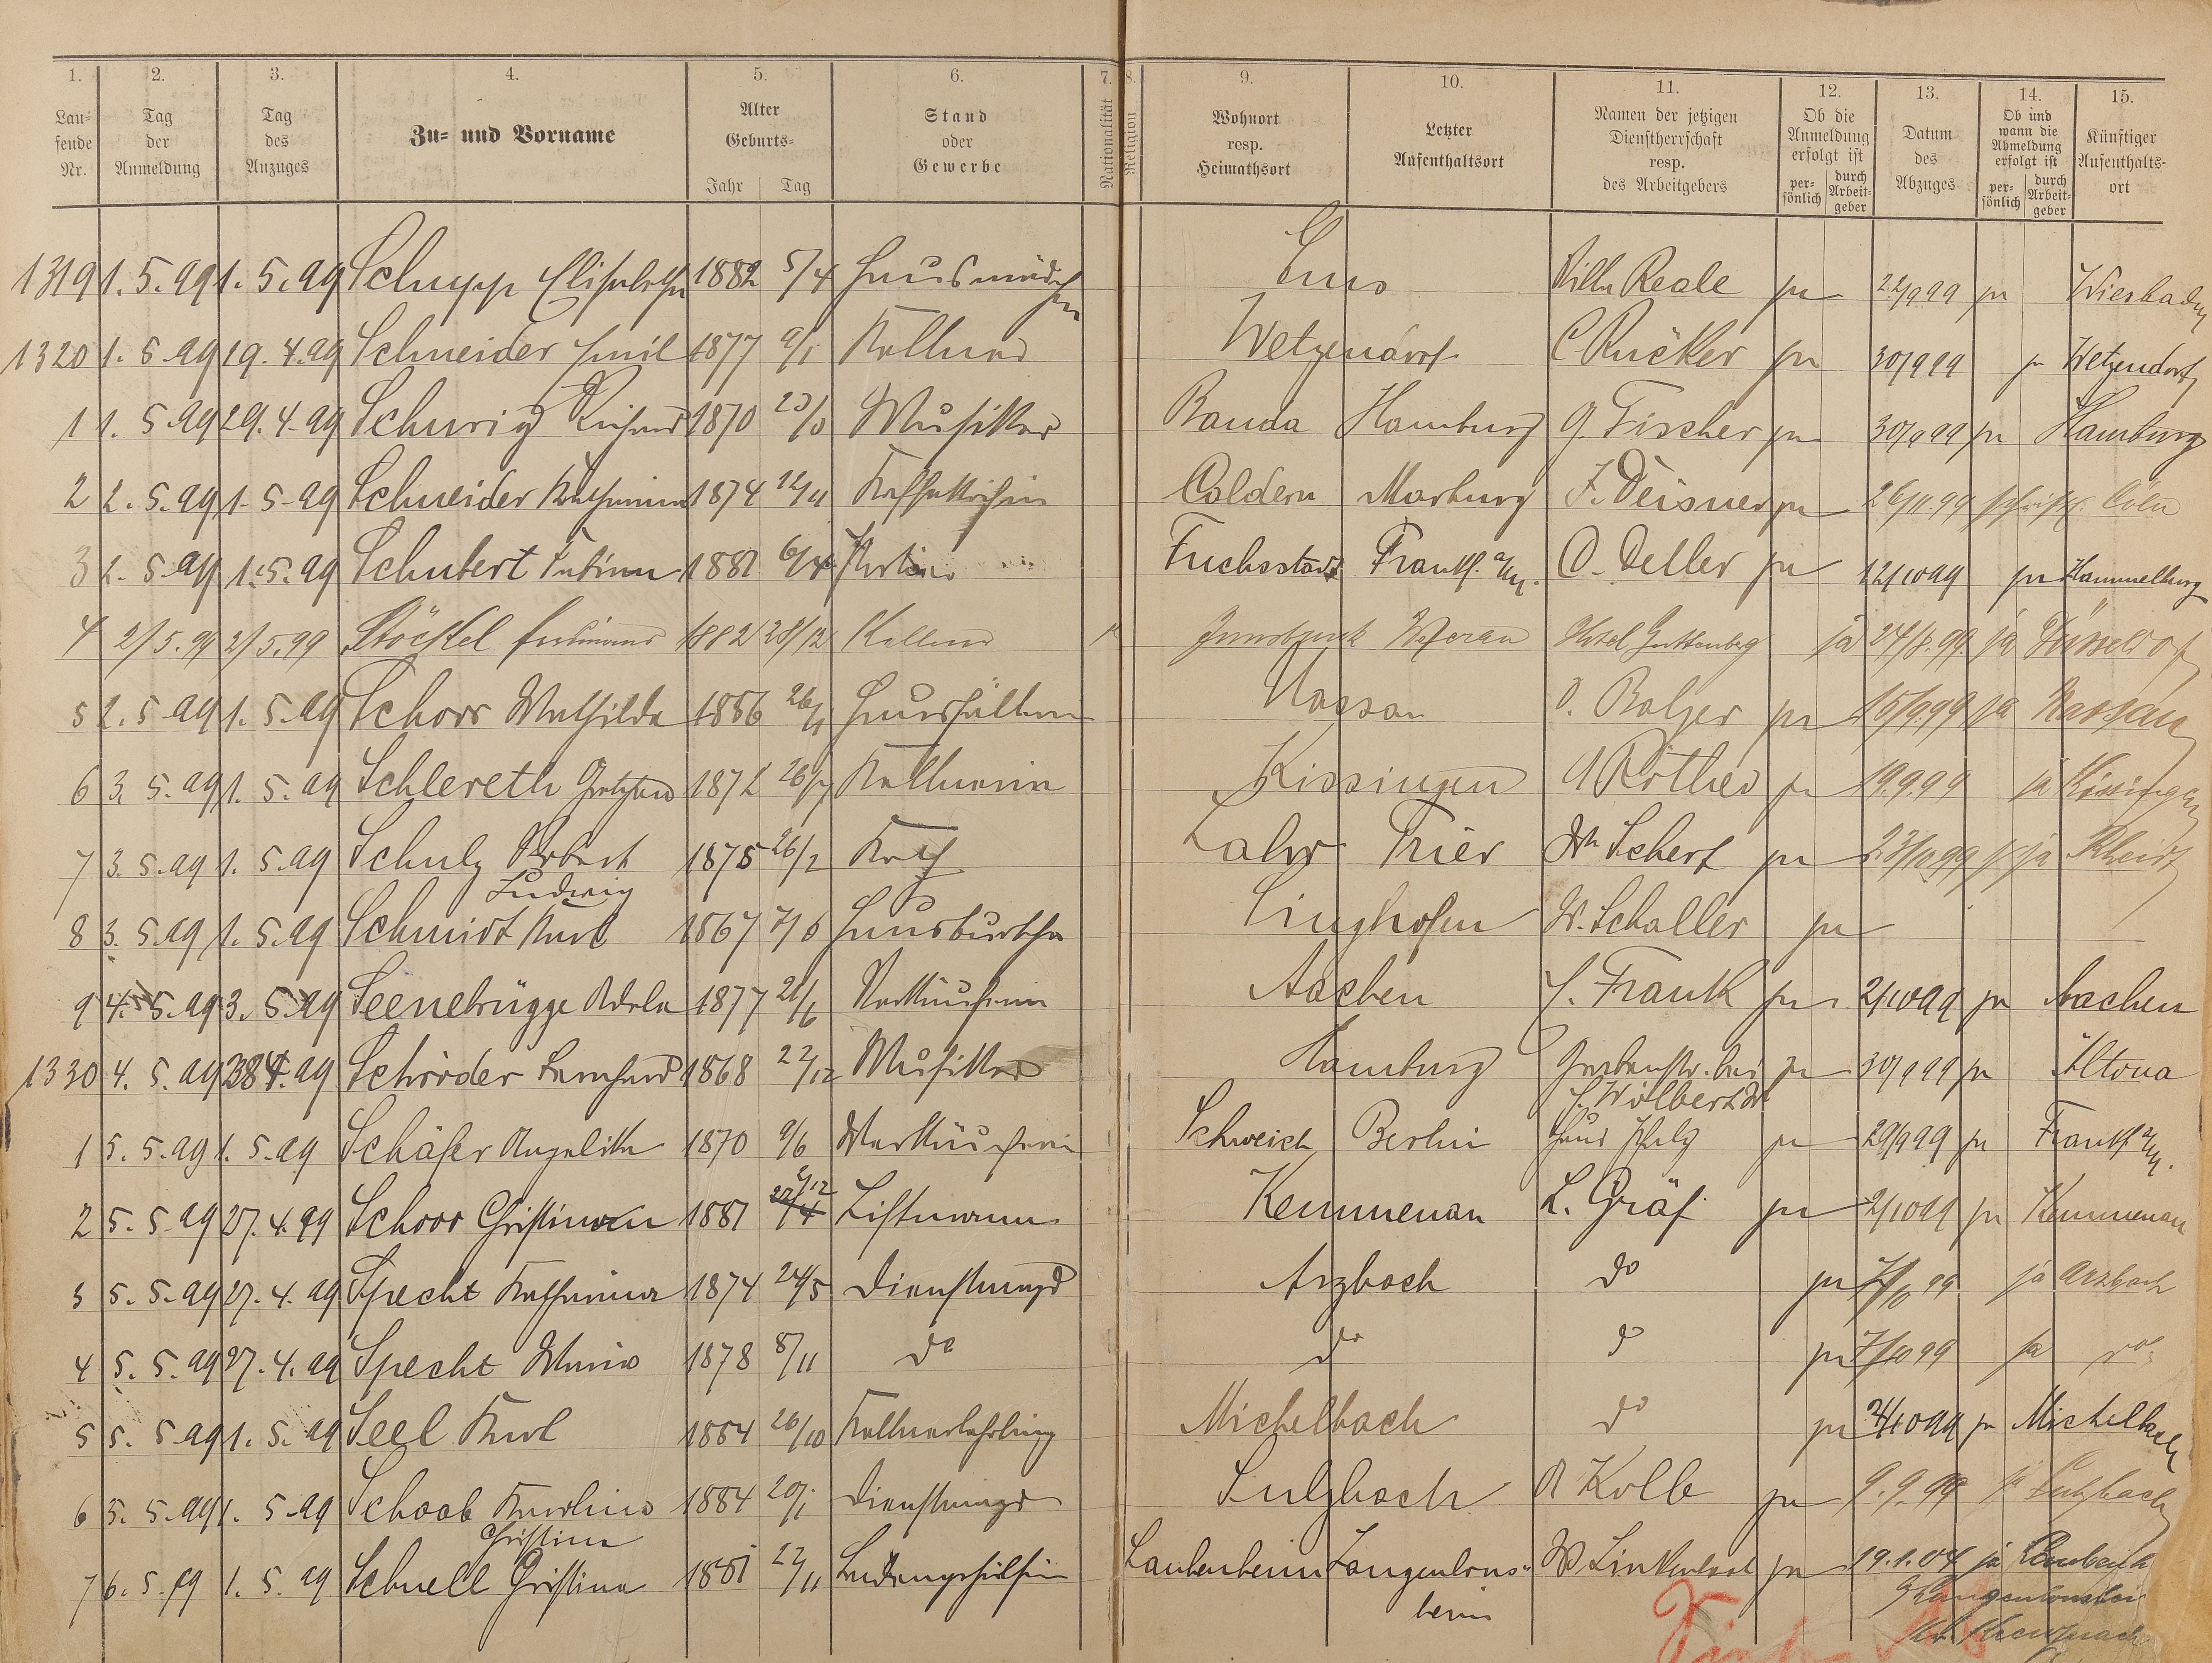 1. 2. 3. 4. 5. 6. 7. 8. 9. 10. 11. 12. 13. 14. 15.
Lau-
fende
Nr.
Tag
der
Anmeldung
Tag
des
Anzuges
Zu- und Vorname
Alter
Geburts-
Jahr Tag
Stand
oder
Gewerbe
Nationalität
Religion
Wohnort
resp.
Heimathsort
Letzter
Aufenthaltsort
Namen der jetzigen
Dienstherrschaft
resp.
des Arbeitgebers
Ob die
Anmeldung
erfolgt ist
per-
sönlich
durch
Arbeit-
geber
Datum
des
Abzuges
Ob und
wann die
Abmeldung
erfolgt ist
per-
sönlich
durch
Arbeit-
geber
Künftiger
Aufenthalts-
ort
1319 1. 5. 99 1. 5. 99 Schupp Elisabetha 1882 5/4 Hausmädchen Ems Wilh. Reale ja 22/9 99 ja Wiesbaden
1320 1. 5. 99 19. 4. 99 Schneider Emil 1877 9/1 Kellner Wetzendorf C Rücker ja 30/9 99 ja Wetzendorf
1 1. 5. 99 29. 4. 99 Schurig Richard 1870 Musiker Banda Hamburg G. Fischer ja 30/9 99 ja Hamburg
2 2. 5. 99 1. 5. 99 Schneider Katharina 1874 Kaffeköchin Caldern Marburg F. Deisner ja 26/11. 99 schriftl. Cöln
3 2. 5. 99 1. 5. 99 Schubert Fabian 1881 Portier Fuchsstadt Frankf. a/M. O. Deller ja 12/10 99 ja Hammelburg
4 2/5. 99 2/5. 99 Stöckel Ferdinand 1882 28/12 Kellner Innsbruck Meran Hotel Guttenberg ja 24/8. 99. ja Düsseldorf
5 2. 5. 99 1. 5. 99 Schorr Mathilda 1856 26/1 Haushälterin Nassau D. Balzer ja 15/9. 99 ja Nassau
6 3. 5. 99 1. 5. 99 Schlereth 1872 26/7 Kellnerin Kissingen A Röther ja 19. 9. 99 ja Kissingen
7 3. 5. 99 1. 5. 99 Schulz Robert 1875 26/2 Koch Lahr Trier Wh Schert ja 23/10 99 ja Rheidt
Ludwig
8 3. 5. 99 1. 5. 99 Schmidt Karl 1867 Hausbursche Singhofen W. Schaller ja
9 4. 5. 99 3. 5. 99 Seenebrügge Adele 1877 21/6 Verkäuferin Aachen J. Frank ja 2/10 99 ja Aachen
1330 4. 5. 99 4. 99 Schröder Bernhard 1868 22/12 Musiker Hamburg Grabenstr. bei ja 30/9 99 ja Altona
J. Wilbert W.
1 5. 5. 99 1. 5. 99 Schäfer Angelika 1870 9/6 Verkäuferin Schweich Berlin Haus Pfalz ja 29/9 99 ja Frankf. a/M.
2 5. 5. 99 27. 4. 99 Schorr Christian 1881 Liftmann Kemmenau L. Gräf ja 2/10 99 ja Kemmenau
3 5. 5. 99 27. 4. 99 Specht Katharina 1874 24/5 Dienstmagd Arzbach do ja 7/10 99 ja Arzbach
4 5. 5. 99 27. 4. 99 Specht Maria 1878 8/11 do do do ja 7/10 99 ja do
5 5. 5. 99 1. 5. 99 Seel Karl 1884 26/10 Kellnerlehrling Michelbach do ja 2/10 99 ja Michelbach
6 5. 5. 99 1. 5. 99 Schaab Karolina 1884 20/1 Dienstmagd Sulzbach A Kolb ja 9. 9. 99 ja Sulzbach
Christina
7 6. 5. 99 1. 5. 99 Schnell Christina 1881 22/11 Ladengehülfin Laubenheim Langenlons- W Linkenbach ja 19. 1. 04 ja
heim
Langenlonsheim
Kr. Kreuznach